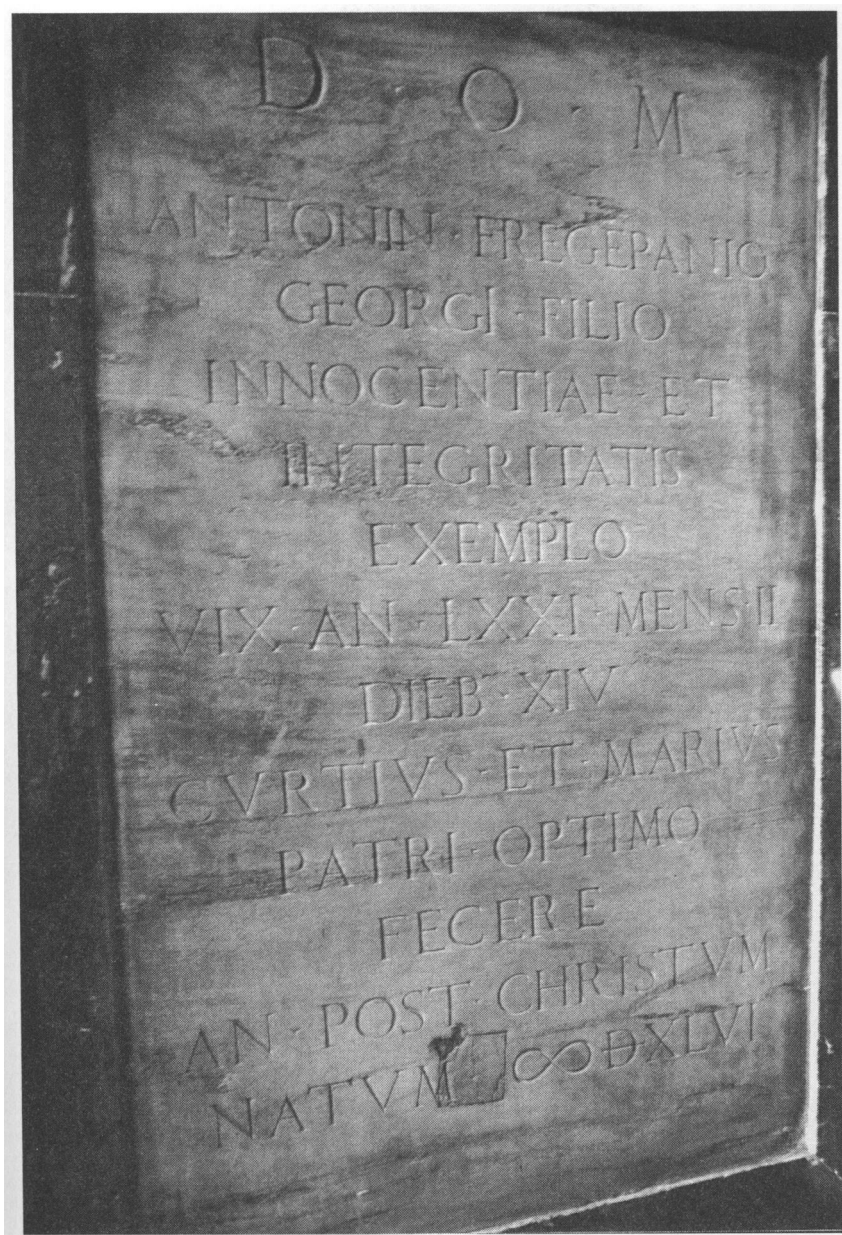 D · O · M
ANTONIN · FREGEPANIO
GEORGI · FILIO
INNOCENTIAE · ET
INTEGRITATIS
EXEMPLO
VIX · AN · LXXI · MENS · II
DIEB · XIV
CVRTIVS · ET · MARIVS
PATRI · OPTIMO
FECERE
AN · POST · CHRISTVM
NATVM ∞ ĐXLVI